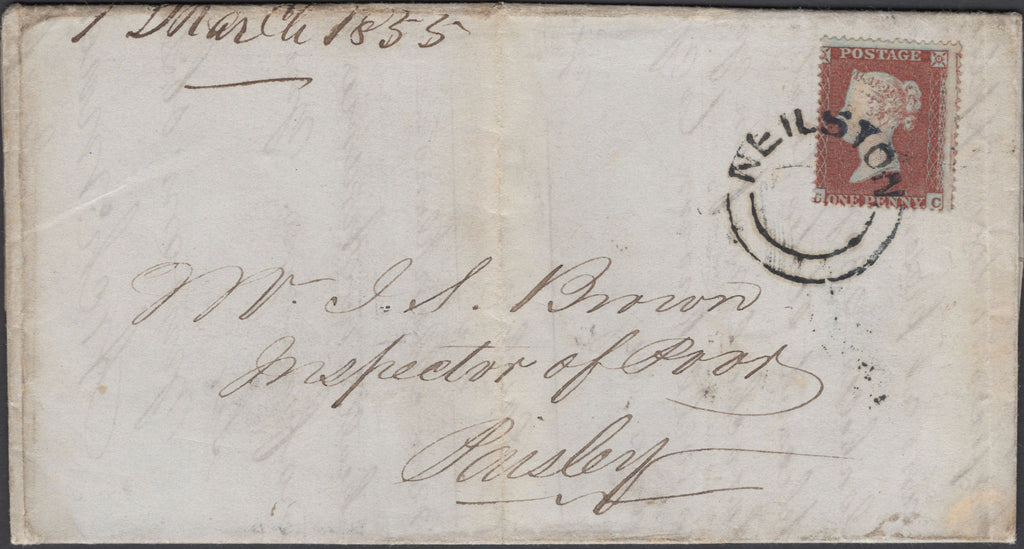 1 March 1855
POSTAGE
NEILSTON
ONE PENNY C
Mr. J. S. Brown
Inspector of Poor
Paisley